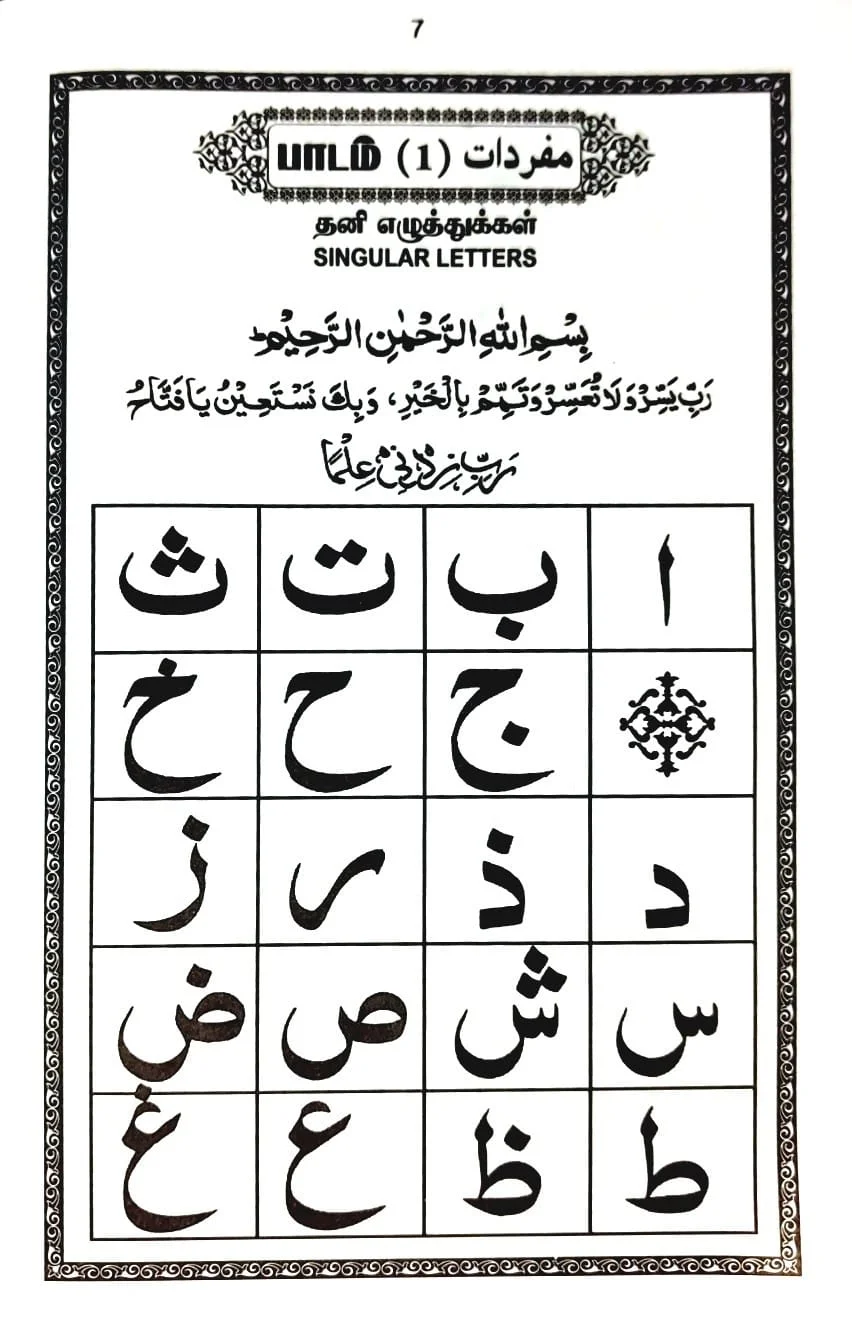 7
பாடம் (1) مفردات
தனி எழுத்துக்கள்
SINGULAR LETTERS
بِسْمِ اللهِ الرَّحْمٰنِ الرَّحِيْمِ
رَبِّ يَسِّرْ وَلَا تُعَسِّرْ وَتَمِّمْ بِالْخَيْرِ، وَبِكَ نَسْتَعِيْنُ يَا فَتَّاحُ
رَبِّ زِدْنِيْ عِلْمًا
ا ب ت ث
ج ح خ
د ذ ر ز
س ش ص ض
ط ظ ع غ